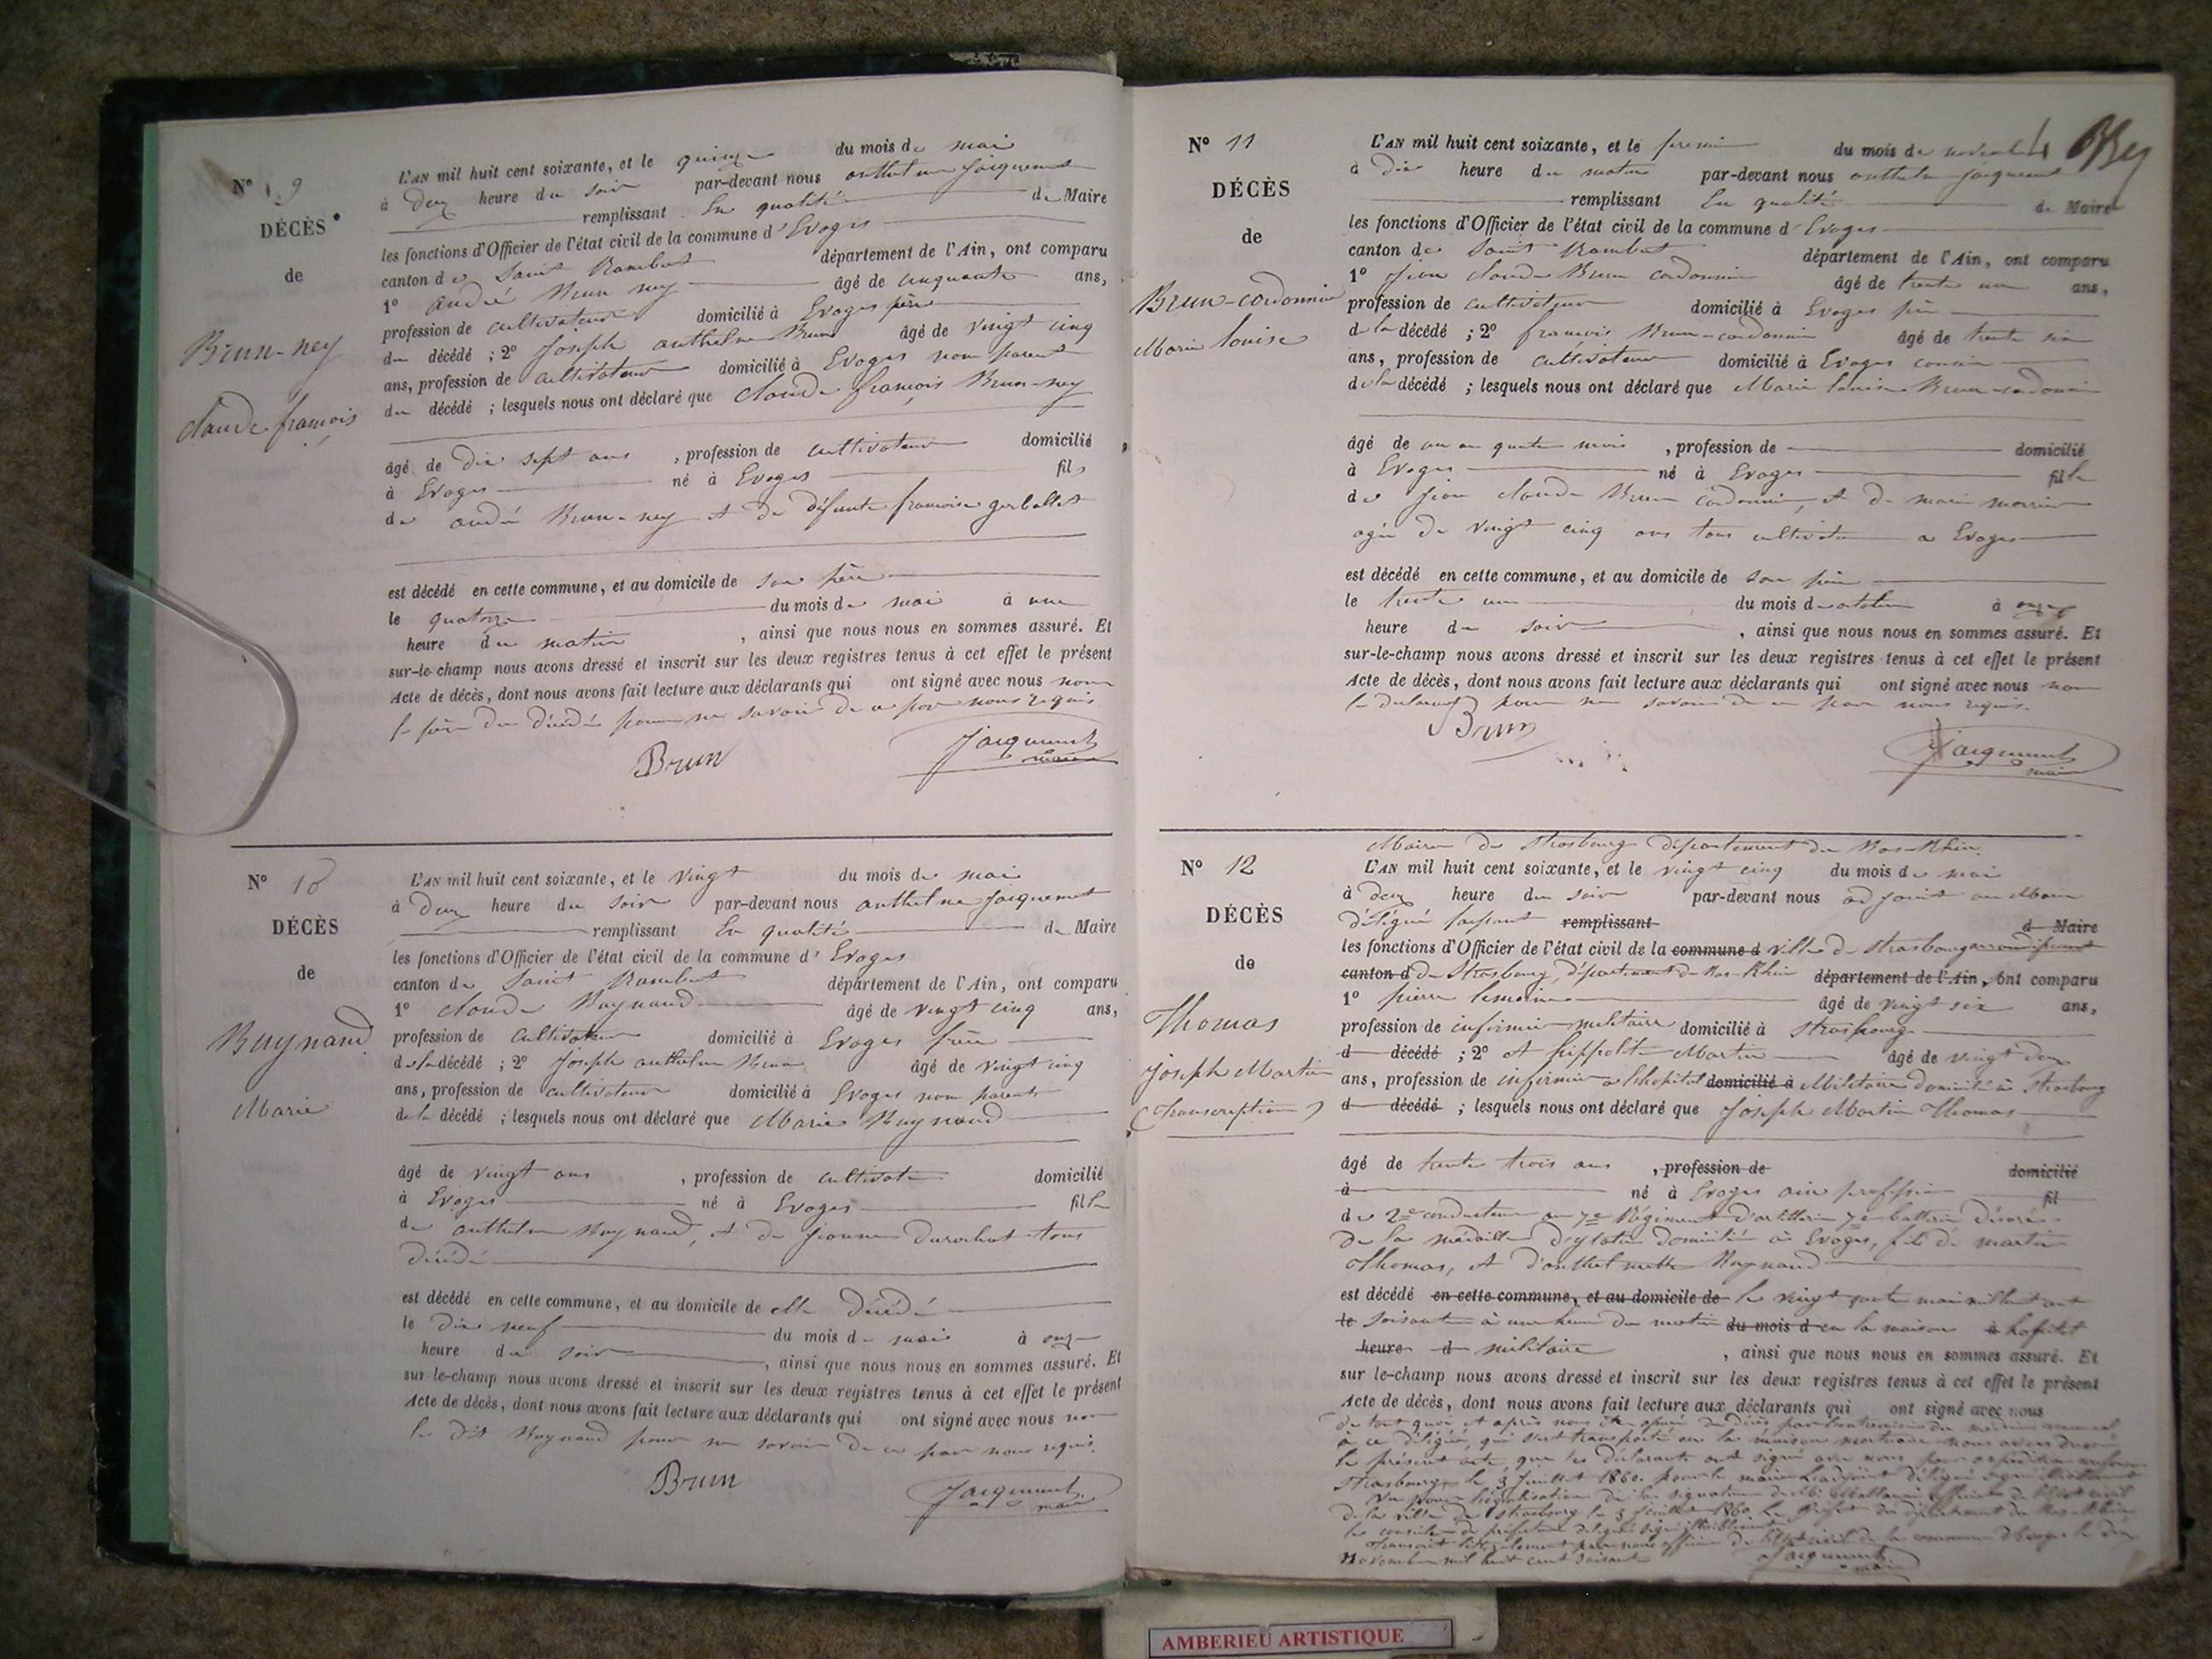 N° 9
DÉCÈS
de
Brun-ney
claude françois
L'AN mil huit cent soixante, et le quinze du mois de mai
à deux heure du soir par-devant nous anthelme jacquemet
remplissant en qualité de Maire
les fonctions d'Officier de l'état civil de la commune d'Evoges
canton de Saint Rambert département de l'Ain, ont comparu
1° andré Brun ney âgé de cinquante ans,
profession de cultivateur domicilié à Evoges père
du décédé ; 2° Joseph anthelme Brun âgé de vingt cinq
ans, profession de cultivateur domicilié à Evoges non parent
du décédé ; lesquels nous ont déclaré que claude françois Brun-ney
âgé de dix sept ans , profession de cultivateur domicilié
à Evoges né à Evoges fils
de andré Brun-ney et de défunte françoise gerballet
est décédé en cette commune, et au domicile de son père
le quatorze du mois de mai à une
heure du matin , ainsi que nous nous en sommes assuré. Et
sur-le-champ nous avons dressé et inscrit sur les deux registres tenus à cet effet le présent
Acte de décès, dont nous avons fait lecture aux déclarants qui ont signé avec nous non
le père du décédé pour ne savoir de ce par nous requis
Brun Jacquemet
maire
N° 10
DÉCÈS
de
Raynand
Marie
L'AN mil huit cent soixante, et le vingt du mois de mai
à deux heure du soir par-devant nous anthelme jacquemet
remplissant en qualité de Maire
les fonctions d'Officier de l'état civil de la commune d' Evoges
canton de Saint Rambert département de l'Ain, ont comparu
1° claude Raynaud âgé de vingt cinq ans,
profession de cultivateur domicilié à Evoges frère
de la décédé ; 2° Joseph anthelme Brun âgé de vingt cinq
ans, profession de cultivateur domicilié à Evoges non parent
de la décédé ; lesquels nous ont déclaré que Marie Raynaud
âgé de vingt ans , profession de cultivat domicilié
à Evoges né à Evoges fille
de anthelme Raynaud, et de jeanne durochat tous
décédé
est décédé en cette commune, et au domicile de elle décédé
le dix neuf du mois de mai à onze
heure du soir , ainsi que nous nous en sommes assuré. Et
sur-le-champ nous avons dressé et inscrit sur les deux registres tenus à cet effet le présent
Acte de décès, dont nous avons fait lecture aux déclarants qui ont signé avec nous non
le dit Raynaud pour ne savoir de ce par nous requis.
Brun Jacquemet
maire
N° 11
DÉCÈS
de
Brun-cordonnier
Marie louise
L'AN mil huit cent soixante, et le premier du mois de novembre
à dix heure du matin par-devant nous anthelme jacquemet
remplissant en qualité de Maire
les fonctions d'Officier de l'état civil de la commune d'Evoges
canton de Saint Rambert département de l'Ain, ont comparu
1° jean claude Brun cordonnier âgé de trente un ans,
profession de cultivateur domicilié à Evoges père
de la décédé ; 2° françois Brun-cordonnier âgé de trente six
ans, profession de cultivateur domicilié à Evoges cousin
de la décédé ; lesquels nous ont déclaré que Marie louise Brun-cordonnier
âgé de un an quatre mois , profession de domicilié
à Evoges né à Evoges fille
de jean claude Brun cordonnier, et de marie
agée de vingt cinq ans tous cultivateur a Evoges
est décédé en cette commune, et au domicile de son père
le trente un du mois d'octobre à onze
heure du soir , ainsi que nous nous en sommes assuré. Et
sur-le-champ nous avons dressé et inscrit sur les deux registres tenus à cet effet le présent
Acte de décès, dont nous avons fait lecture aux déclarants qui ont signé avec nous non
le pour ne savoir de ce par nous requis.
Brun Jacquemet
maire
N° 12
DÉCÈS
de
Thomas
joseph Martin
(transcription)
Mairie de Strasbourg département du Bas-Rhin
L'AN mil huit cent soixante, et le vingt cinq du mois de mai
à deux heure du soir par-devant nous adjoint au Maire
délégué faisant remplissant d Maire
les fonctions d'Officier de l'état civil de la commune d ville de Strasbourg arrondissement
canton d de Strasbourg, département du Bas-Rhin département de l'Ain, ont comparu
1° pierre lemoine âgé de vingt six ans,
profession de infirmier militaire domicilié à Strasbourg
d décédé ; 2° et hippolite Martin âgé de vingt deux
ans, profession de infirmier a l'hopital domicilié à Militaire domicilié à Strasbourg
d décédé ; lesquels nous ont déclaré que Joseph Martin Thomas
âgé de trente trois ans , profession de domicilié
à né à Evoges ain profession fil
de 2e conducteur au 7e Régiment d'artillerie 7e batterie décoré
de la médaille d'ytalie domicilié à Evoges, fils de martin
Thomas, et d'anthelmette Raynaud
est décédé en cette commune, et au domicile de le vingt quatre mai mil huit cent
le soixante à une heure du matin du mois d en la maison à hopital
heure d militaire , ainsi que nous nous en sommes assuré. Et
sur le-champ nous avons dressé et inscrit sur les deux registres tenus à cet effet le présent
Acte de décès, dont nous avons fait lecture aux déclarants qui ont signé avec nous
de tout quoi et après nous être assuré du décès par
à ce délégué, qui s'est transporté en la maison mortuaire nous avons dressé
le présent acte que les déclarants ont signé avec nous pour expédition conforme
Strasbourg le 3 juillet 1860. pour le maire l'adjoint délégué
Vu pour légalisation de la signature de Mr officier de l'état civil
de la ville de Strasbourg le 3 juillet 1860 le préfet du département du Bas-Rhin
le conseiller de préfecture délégué signé illisiblement
transcrit littéralement par nous officier de l'état civil de la commune d'Evoges le deux
Novembre mil huit cent soixante Jacquemet
maire
AMBERIEU ARTISTIQUE